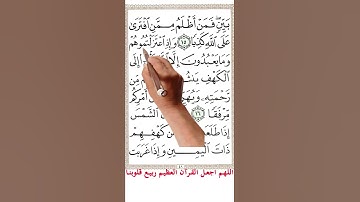 بَيِّنٍ فَمَنْ أَظْلَمُ مِمَّنِ ٱفْتَرَىٰ
عَلَى ٱللَّهِ كَذِبًا ١٥ وَإِذِ ٱعْتَزَلْتُمُوهُمْ
وَمَا يَعْبُدُونَ إِلَّا إِلَى
ٱلْكَهْفِ
رَّحْمَتِهِۦ أَمْرِكُم
مِّرْفَقًا ١٦ ٱلشَّمْسَ
إِذَا كَهْفِهِمْ
ذَاتَ ٱلْيَمِينِ وَإِذَا غَرَبَت
اللهم اجعل القرآن العظيم ربيع قلوبنا